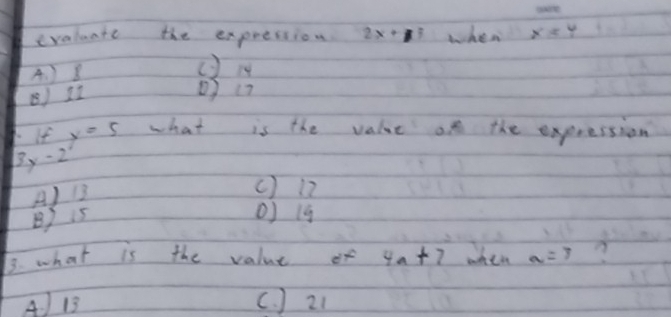 evaluate the expression 2x + 3 when x = 4
A.) 8 C.) 14
B) 11 D) 17
If y = 5 what is the value of the expression
3y - 2
A) 13 C) 17
B) 15 D) 19
3. what is the value of 4a + 7 when a = 3 ?
A.) 13 C.) 21